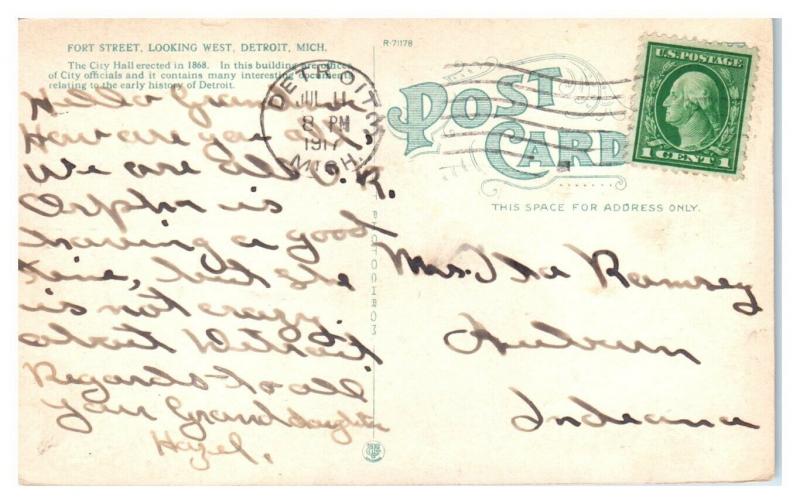 FORT STREET, LOOKING WEST, DETROIT, MICH.
The City Hall erected in 1868. In this building are offices
of City officials and it contains many interesting documents
relating to the early history of Detroit.
R-71178
POST
CARD
THIS SPACE FOR ADDRESS ONLY.
DETROIT
JUL 11
8 PM
1917
MICH.
U.S. POSTAGE
1 CENT 1
Hello
How are you all,
We are all O.K.
Orpha is
having a good
time, but she
is not crazy
about Detroit
Regards to all
your Granddaughter
Hazel.
Mrs. Ramsey
Auburn
Indiana